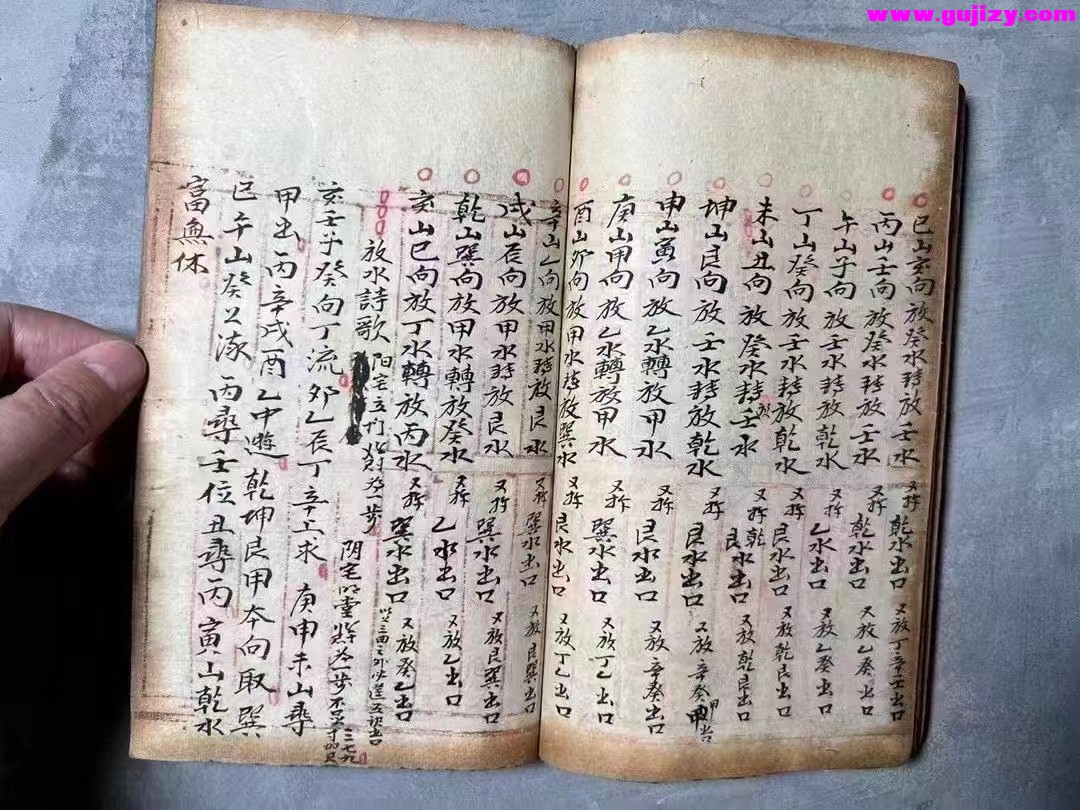 www.gujizy.com
巳山亥向放癸水轉放壬水 又拆乾水出口 又放丁辛壬出口
丙山壬向放癸水轉放壬水 又拆乾水出口 又放乙癸出口
午山子向放壬水轉放乾水 又拆乙水出口 又放乙癸出口
丁山癸向放壬水轉放乾水 又拆艮水出口 又放乾艮出口
未山丑向放癸水轉放壬水 又拆乾艮水出口 又放乾艮出口
坤山艮向放壬水轉放乾水 又拆艮水出口 又放辛癸甲出口
申山寅向放乙水轉放甲水 又拆艮水出口 又放辛癸出口
庚山甲向放乙水轉放甲水 又拆巽水出口 又放丁乙出口
酉山卯向放甲水轉放巽水 又拆艮水出口 又放丁乙出口
辛山乙向放甲水轉放艮水 又拆巽水出口 又放艮巽出口
戌山辰向放甲水轉放艮水 又拆巽水出口 又放艮巽出口
乾山巽向放甲水轉放癸水 又拆乙水出口 又放乙出口
亥山巳向放丁水轉放丙水 又拆巽水出口 又放癸乙出口
放水詩歌 陽宅 一步 阴宅明堂 一步
亥壬子癸向丁流卯乙辰丁辛上求 庚申未山尋
甲出丙辛戌酉乙中遊乾坤艮甲本向取巽
巳午山癸 丙尋壬位丑尋丙寅山乾水
富無休